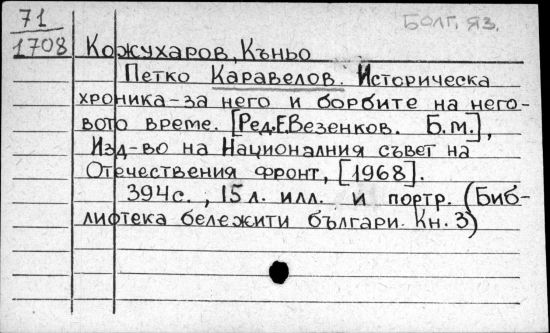 71
1708
Болг. яз.
Кожухаров, Къньо
Петко Каравелов. Историческа
хроника-за него и борбите на него-
вото време. [Ред.Е.Везенков. Б.м.],
Изд-во на Националния съвет на
Отечествения фронт, [1968].
394с., 15 л. илл. и портр. (Биб-
лиотека бележити българи. Кн. 3)